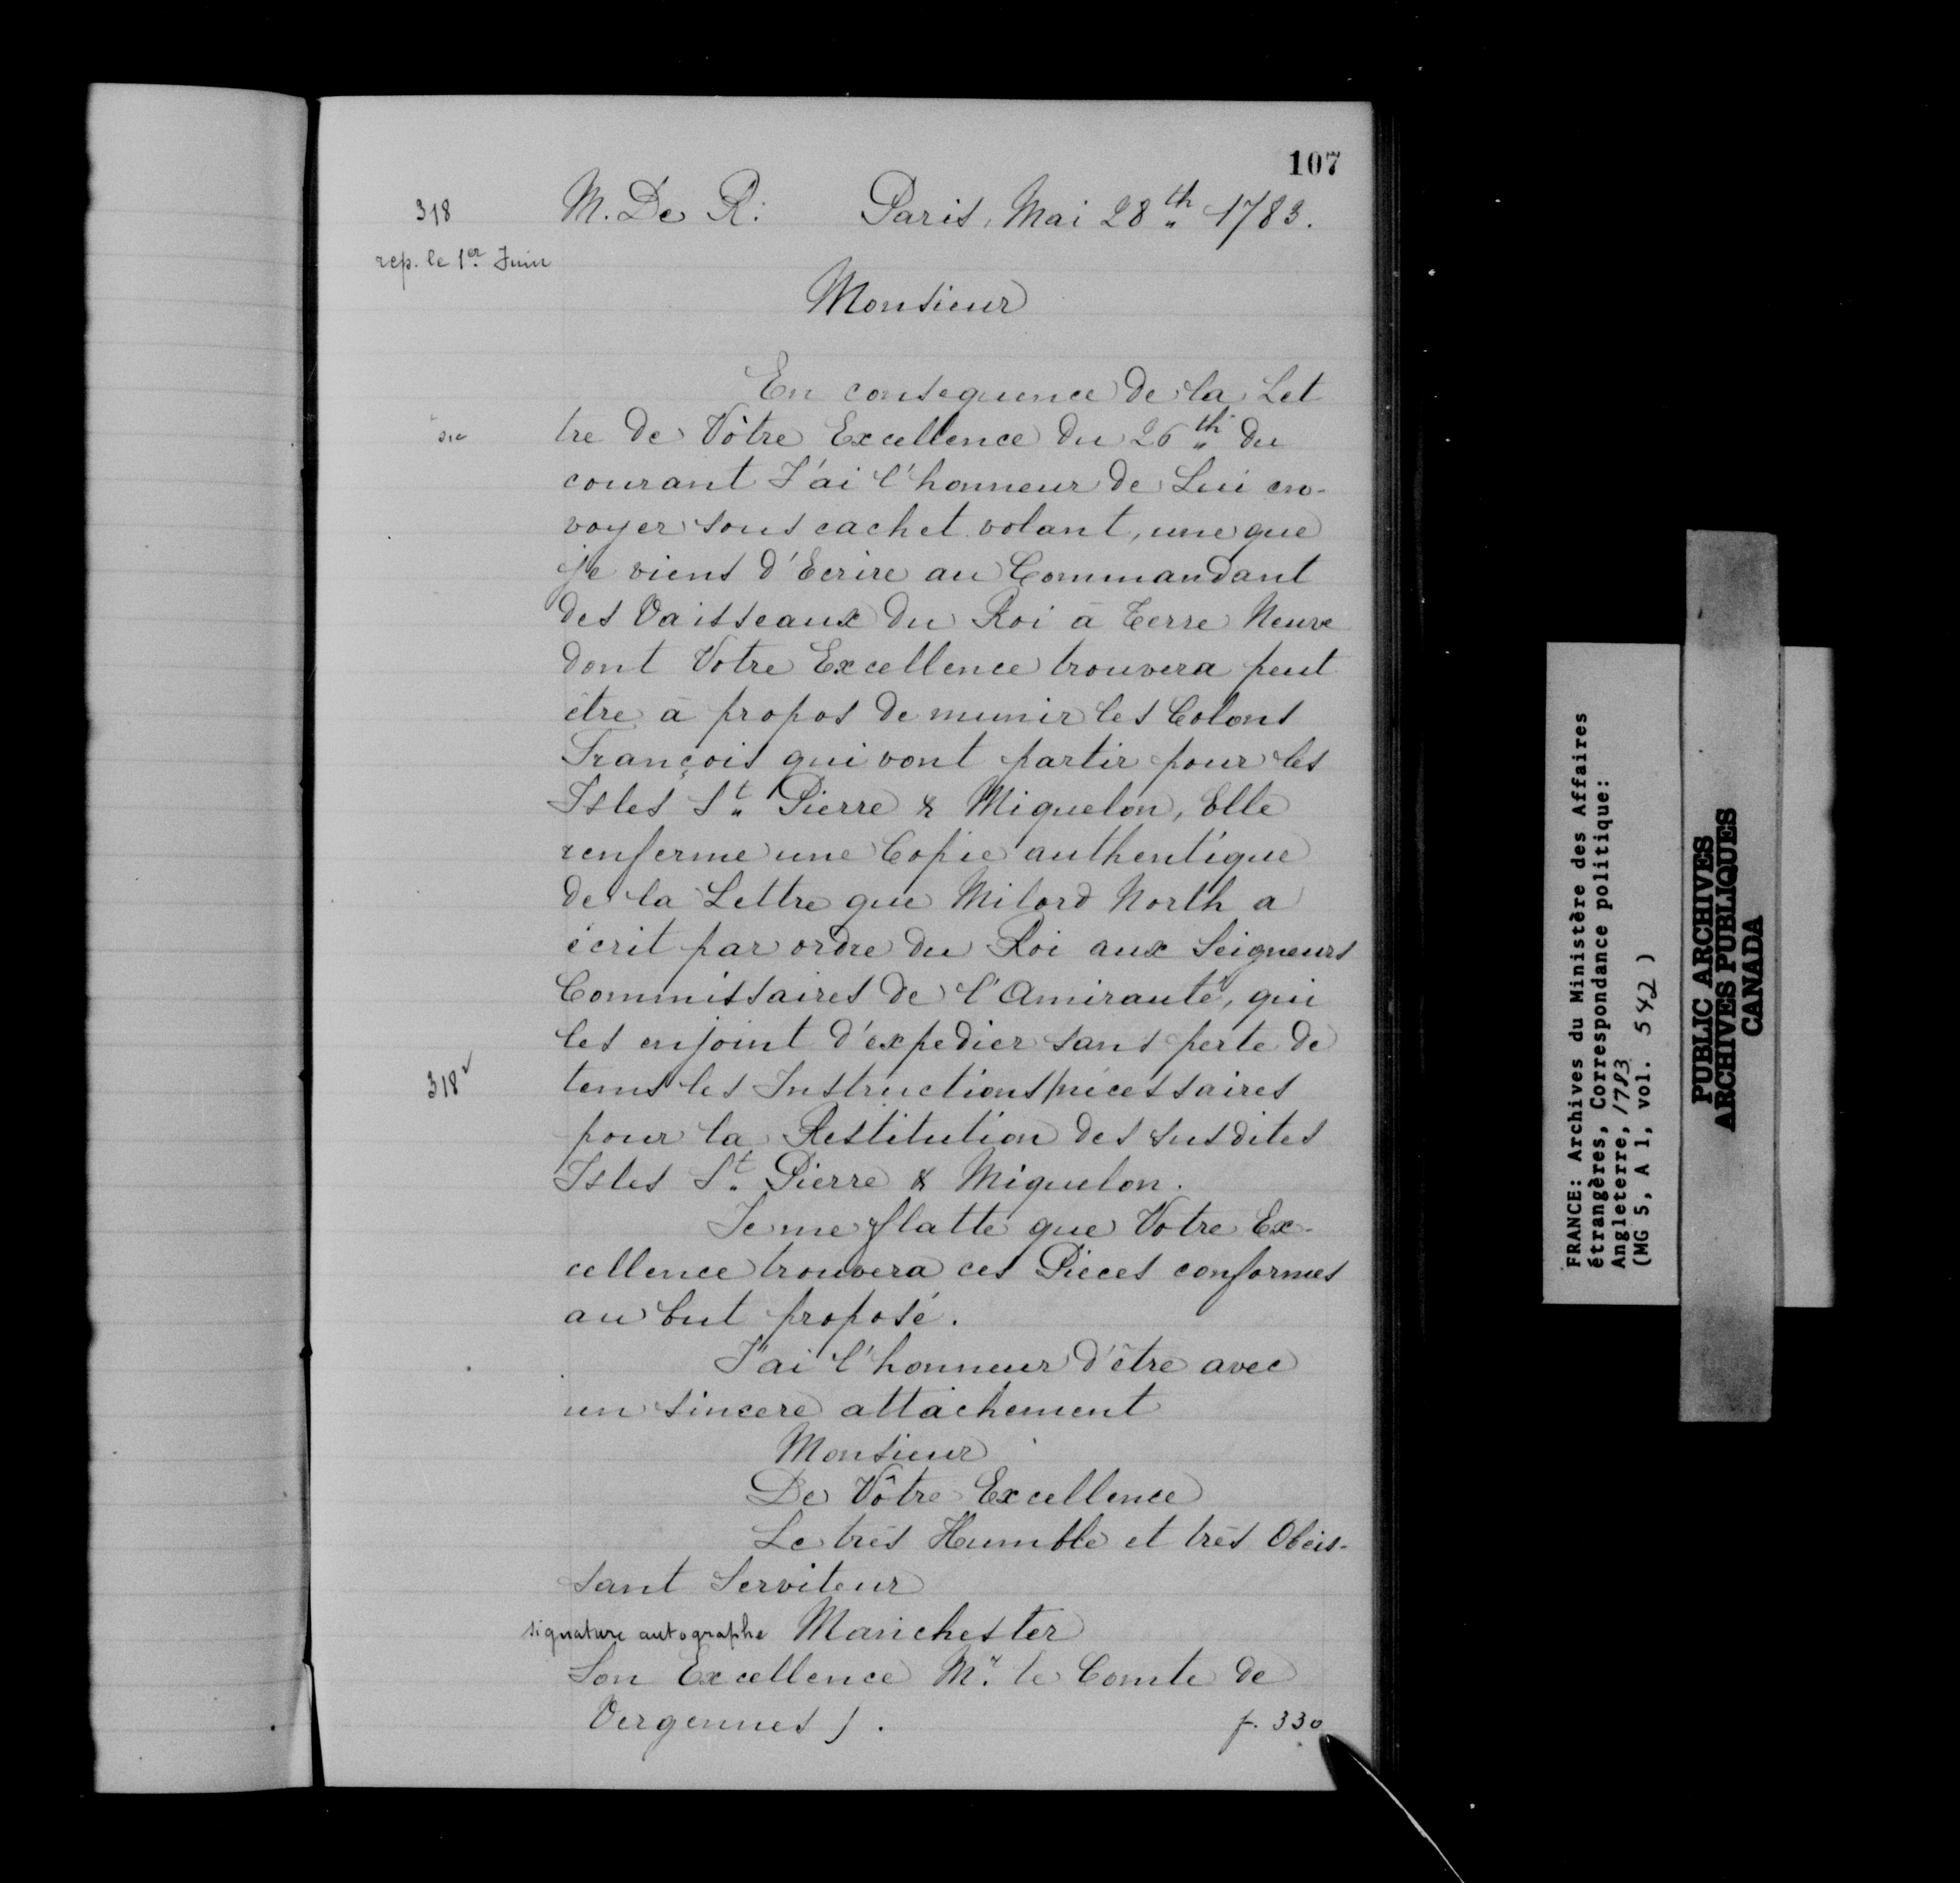 107
318 M. De R. Paris, Mai 28th 1783.
rep. le 1er Juin
Monsieur
En consequence de la Let
sic tre de Vôtre Excellence du 26th du
courant J'ai l'honneur de Lui en-
voyer sous cachet volant, une que
je viens d'Ecrire au Commandant
des Vaisseaux du Roi à Terre Neuve
dont Votre Excellence trouvera peut
être à propos de munir les Colons
François qui vont partir pour les
Isles St Pierre & Miquelon, Elle
renferme une Copie authentique
de la Lettre que Milord North a
écrit par ordre du Roi aux Seigneurs
Commissaires de l'Amirauté, qui
les enjoint d'expedier sans perte de
318v tems les Instructions/nécessaires
pour la Restitution des susdites
Isles St Pierre & Miquelon.
Je me flatte que Votre Ex-
cellence trouvera ces Pieces conformes
au but proposé.
J'ai l'honneur d'être avec
un sincere attachement
Monsieur
De Vôtre Excellence
Le très Humble et très Obéis-
sant Serviteur
signature autographe Manchester
Son Excellence Mr le Comte de
Vergennes). f. 330
FRANCE: Archives du Ministère des Affaires
étrangères, Correspondance politique:
Angleterre, 1783
(MG 5, A 1, vol. 542)
PUBLIC ARCHIVES
ARCHIVES PUBLIQUES
CANADA